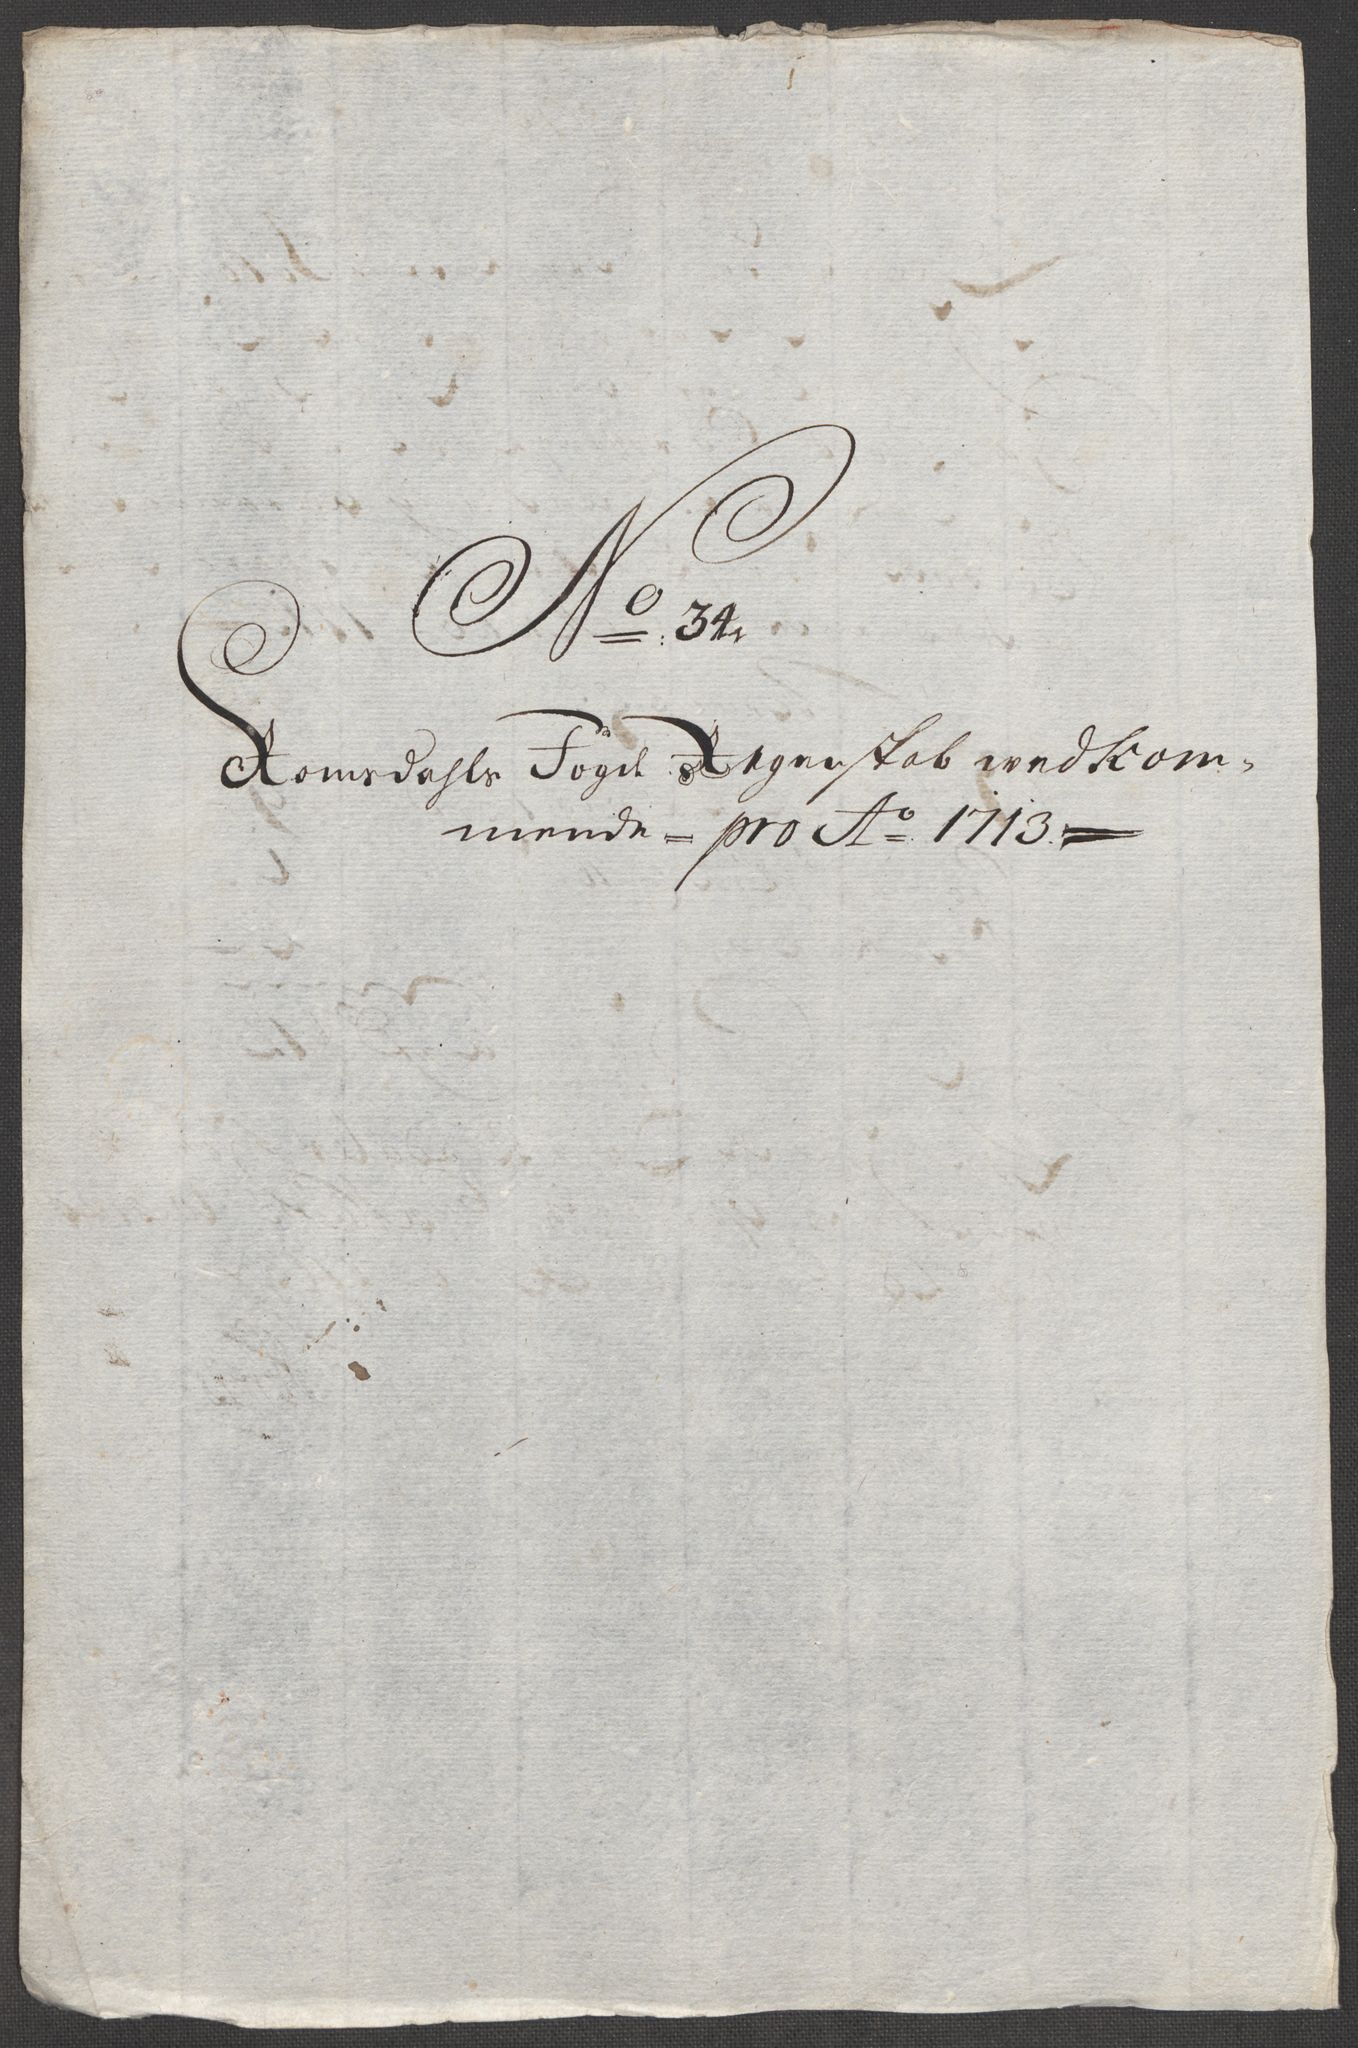 No: 34.
Romsdahls Fögde Regenskab wedkom-
mende = pro Ao. 1713.